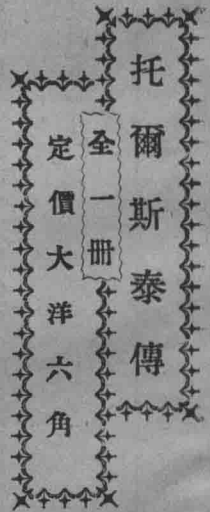 托爾斯泰傳
全一冊
定價大洋六角